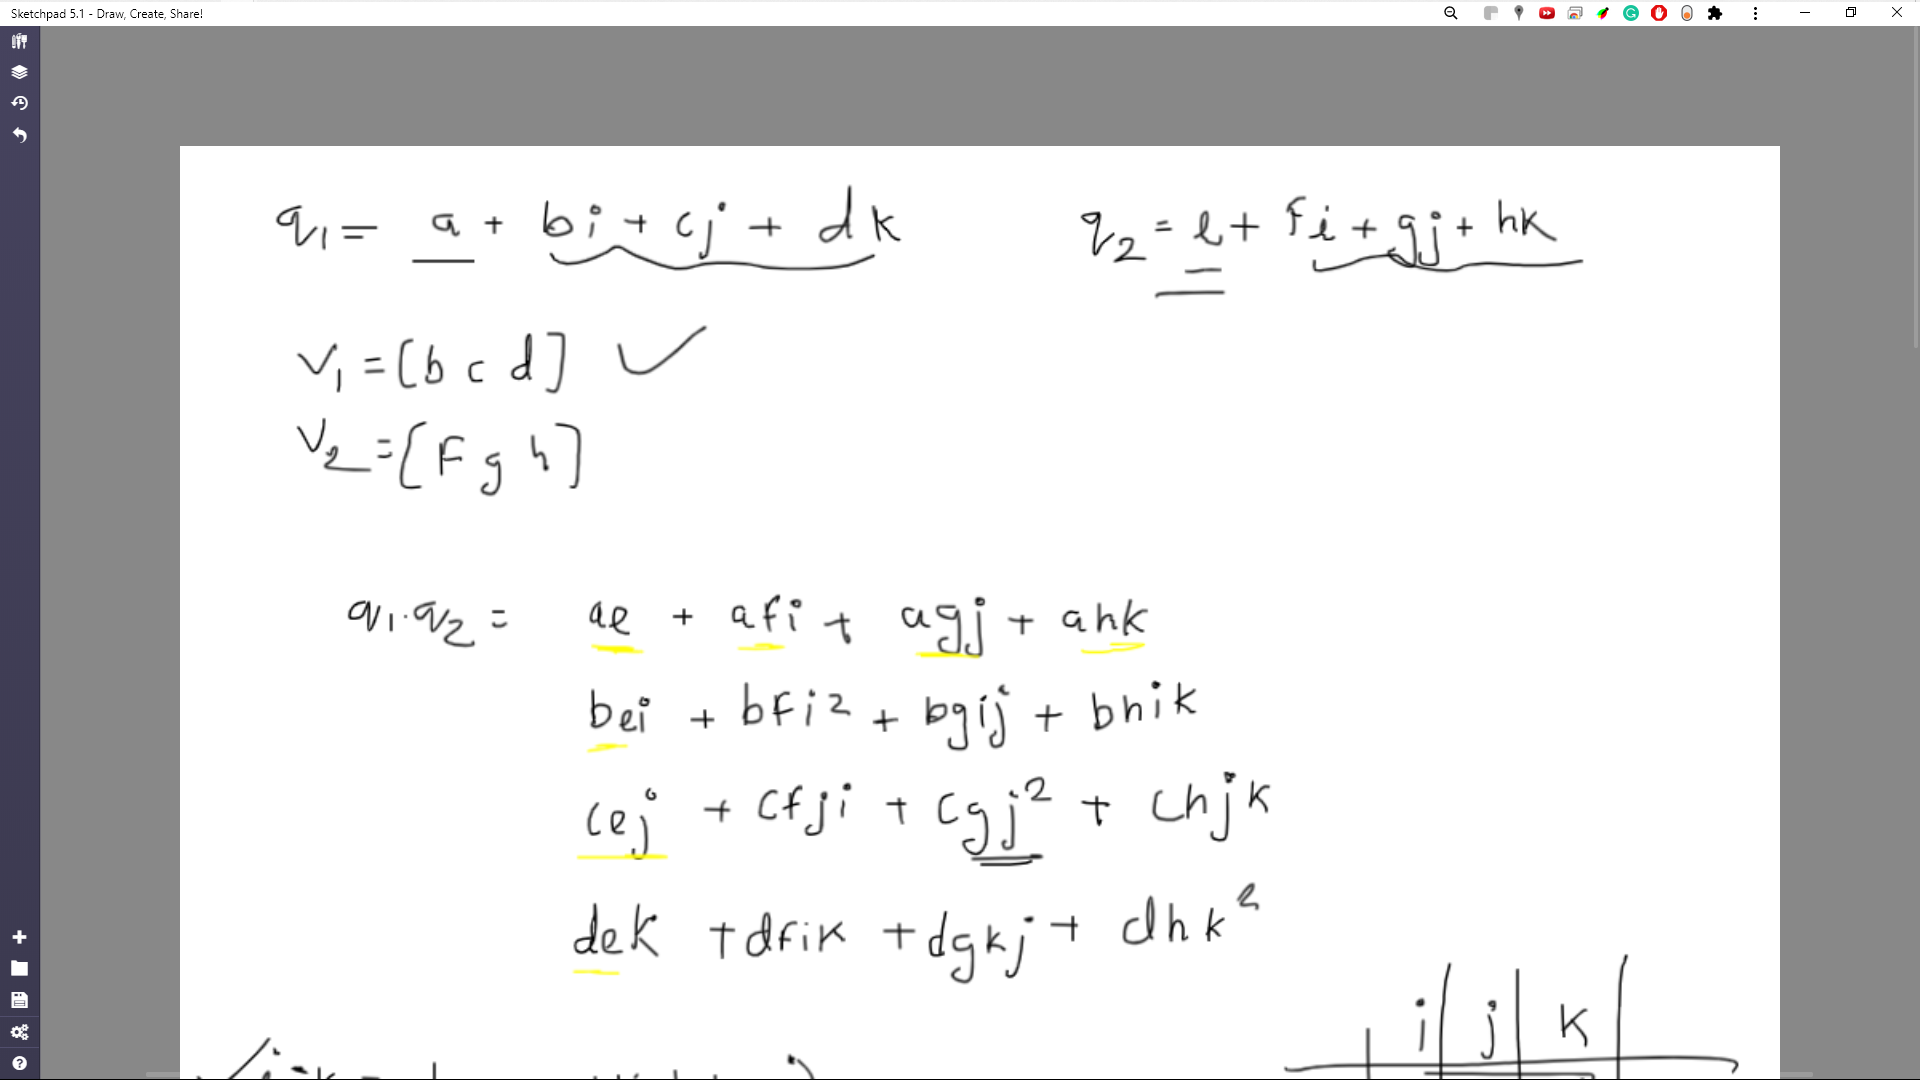 Sketchpad 5.1 - Draw, Create, Share!
q₁ = a + bi + cj + dk
q₂ = e + fi + gj + hk
v₁ = [b c d] ✓
v₂ = [F g h]
q₁·q₂ = ae + afi + agj + ahk
bei + bfi² + bgij + bhik
cej + cfji + cgj² + chjk
dek + dfik + dgkj + dhk²
i j k